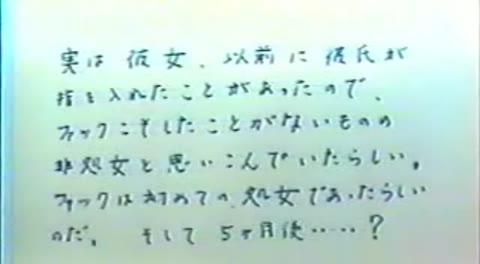 実は 彼女、以前に 彼氏が
指を入れたことがあったので、
ファックこそしたことがないものの
非処女と思いこんでいたらしい。
ファックは初めての、処女であったらしい
のだ。 そして 5ヶ月後……?